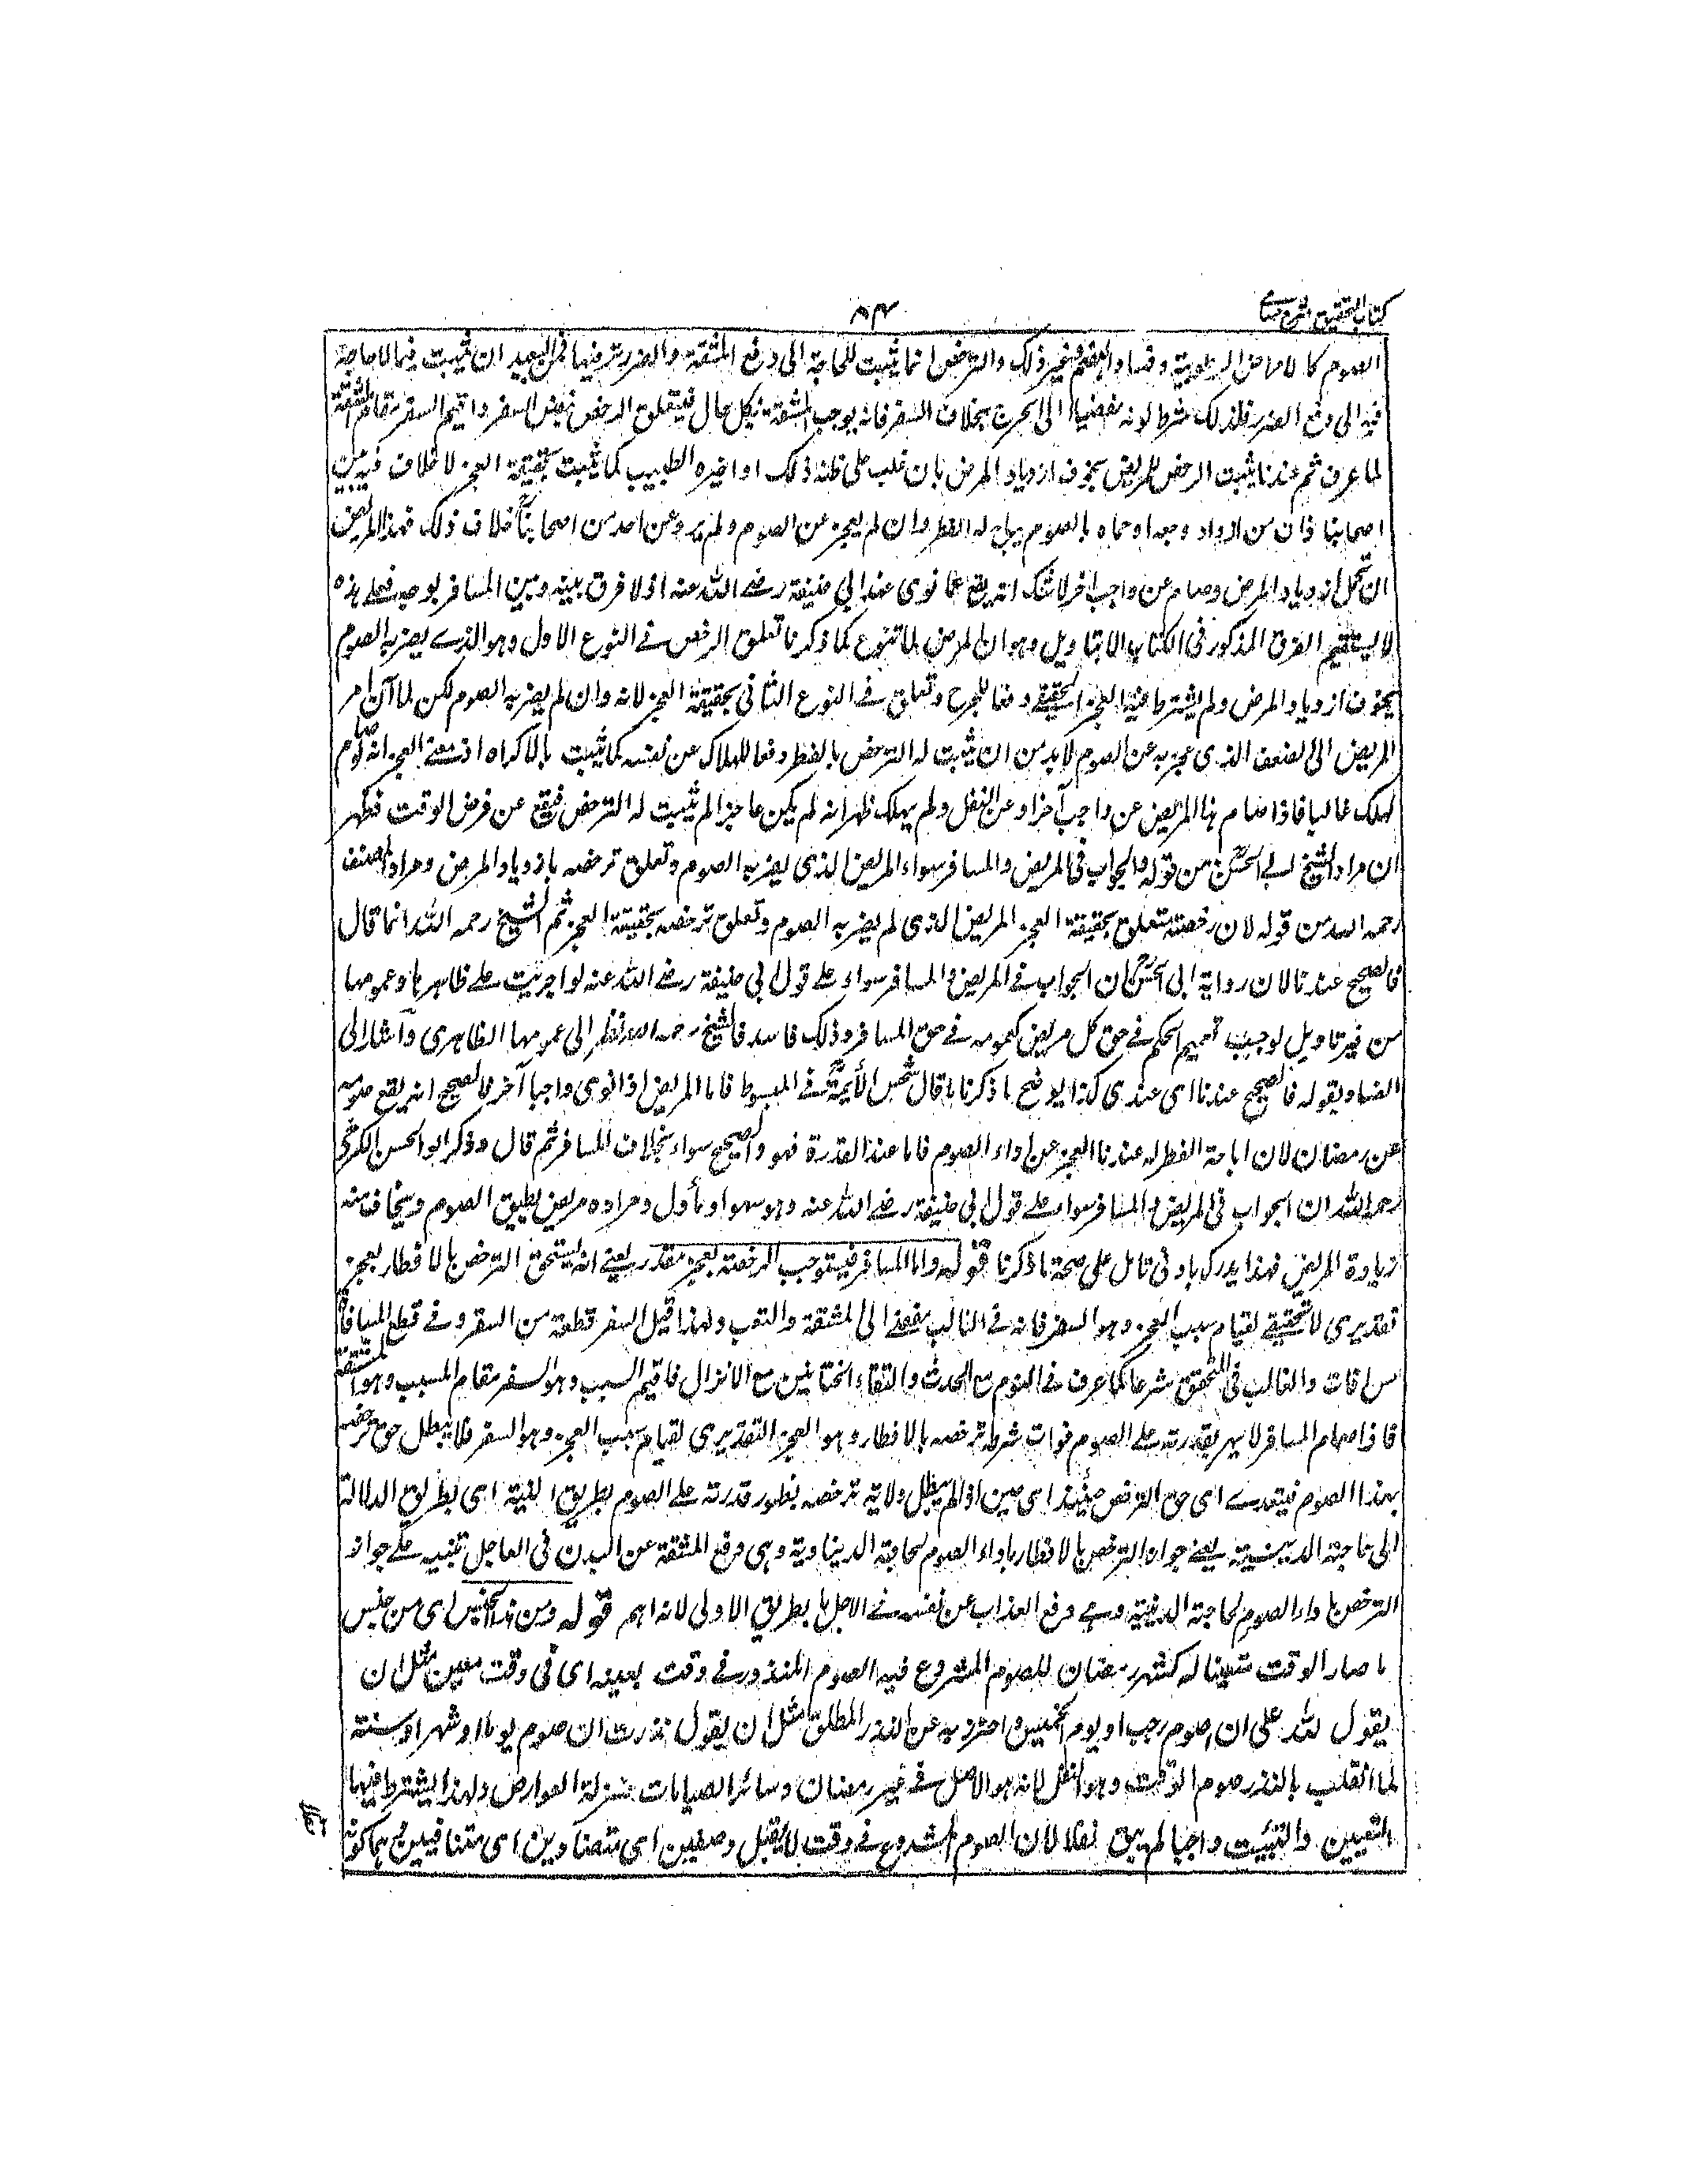 كتاب التحقيق شرح حسامى
٨٣
الصوم كالامراض الرطوبية وفساد الهضم وغير ذلك والترخص انما يثبت للحاجة الى دفع المشقة والضرر ترفيها فمن البعيد ان يثبت فيما لا حاجة
فيه الى دفع الضرر فلذلك شرط كونه مفضيا الى الحرج بخلاف السفر فانه يوجب المشقة بكل حال فيتعلق الرخص بنفس السفر واقيم السفر مقام المشقة
لما عرف ثم عندنا يثبت الرخص للمريض بخوف ازدياد المرض بان غلب على ظنه ذلك او اخبره الطبيب كما يثبت بحقيقة العجز لا خلاف فيه بين
اصحابنا فان من ازداد وجعه او حماه بالصوم يباح له الفطر وان لم يعجز عن الصوم ولم يرو عن احد من اصحابنا خلاف ذلك فهذا المريض
ان تحمل ازدياد المرض وصام عن واجب اخر لا شك انه يقع عما نوى عند ابي حنيفة رضے الله عنه اذ لا فرق بينه وبين المسافر بوجه فعلے هذه
لا يستقيم الفرق المذكور فى الكتاب الا بتاويل وهو ان المرض لما تنوع كما ذكرنا تعلق الرخص فے النوع الاول وهو الذے يضر به الصوم
بخوف ازدياد المرض ولم يشترط فيه العجز الحقيقے دفعا للحرج وتعلق فے النوع الثانى بحقيقة العجز لانه وان لم يضر به الصوم لكن لما آن امر
المريض الى الضعف الذى عجز به عن الصوم لا بد من ان يثبت له الترخص بالفطر دفعا للهلاك عن نفسه كما يثبت بالاكراه اذ معنے العجز انه لو صام
لهلك غالبا فاذا صام هذا المريض عن واجب آخر او عن النفل ولم يهلك ظهر انه لم يكن عاجزا لم يثبت له الترخص فيقع عن فرض الوقت فظهر
ان مراد الشيخ ابے الحسن من قوله والجواب فى المريض والمسافر سواء المريض الذى يضر به الصوم وتعلق ترخصه بازدياد المرض ومراد المصنف
رحمه الله من قوله لان رخصته تتعلق بحقيقة العجز المريض الذى لم يضر به الصوم وتعلق ترخصه بحقيقة العجز ثم الشيخ رحمه الله انما قال
فالصحيح عندنا لان رواية ابى الحسن ان الجواب فے المريض والمسافر سواء علے قول ابي حنيفة رضے الله عنه لو اجريت علے ظاهرها وعمومها
من غير تاويل لوجب تعميم الحكم فے حق كل مريض كعمومه فے حق المسافر وذلك فاسد فالشيخ رحمه الله نظر الى عمومها الظاهرى واشار الى
الفساد بقوله فالصحيح عندنا اى عندى كذا يوضح ما ذكرنا ما قال شمس الأيمة فے المبسوط فاما المريض اذا نوى واجبا آخر فالصحيح انه يقع صومه
عن رمضان لان اباحة الفطر له عندنا العجز عن اداء الصوم فاما عند القدرة فهو والصحيح سواء بخلاف المسافر ثم قال وذكر ابو الحسن الكرخى
رحمه الله ان الجواب فى المريض والمسافر سواء علے قول ابي حنيفة رضے الله عنه وهو سهو او مأول ومراده مريض يطيق الصوم ويخاف منه
زيادة المرض فهذا يدرك بادنى تامل على صحة ما ذكرنا قوله واما المسافر فيستوجب الرخصة بعجز مقدر يعنے انه يستحق الترخص بالافطار بعجز
تقديرى لا تحقيقے لقيام سبب العجز وهو السفر فانه فے الغالب يفضے الى المشقة والتعب ولهذا قيل السفر قطعة من السقر وفے قطع المسافات
مس افات والغالب فى التحقق شرعا كما عرف فے النوم مع الحدث والتقاء الختانين مع الانزال فاقيم السبب وهو السفر مقام المسبب وهو المشقة
فاذا صام المسافر لا يهر بقدرته علے الصوم فوات شرط ترخصه بالافطار وهو العجز التقديرى لقيام سبب العجز وهو السفر فلا يبطل حق ترخصه
بهذا الصوم فيتعدے اى حق الترخص حينئذ اى حين اذ لم يبطل ولاية ترخصه بظهور قدرته علے الصوم بطريق التنبيه اى بطريق الدلالة
الى حاجته الدينية يعنے جواز الترخص بالافطار باداء الصوم لحاجة الدنياوية وهى دفع المشقة عن البدن فى العاجل تنبيه علے جواز
الترخص باداء الصوم لحاجته الدينية وهے دفع العذاب عن نفسه فے الاجل بالطريق الاولى لانه اهم قوله ومن هذا الجنس اى من جنس
ما صار الوقت متعينا له كشهر رمضان للصوم المشروع فيه الصوم المنذور فے وقت بعينه اى فى وقت معين مثل ان
يقول لله على ان اصوم رجب او يوم الخميس واحترز به عن النذر المطلق مثل ان يقول نذرت ان صوم يوما او شهرا او سنة
لما انقلب بالنذر صوم الوقت وهو النفل لانه هو الاصل فے غير رمضان وسائر الصيامات بمنزلة العوارض ولهذا يشترط فيها
التعيين والتبييت واجبا لم يبق نفلا لان الصوم المشروع فے وقت لا يقبل وصفين اى متضادين اى متنافيين هما كونه